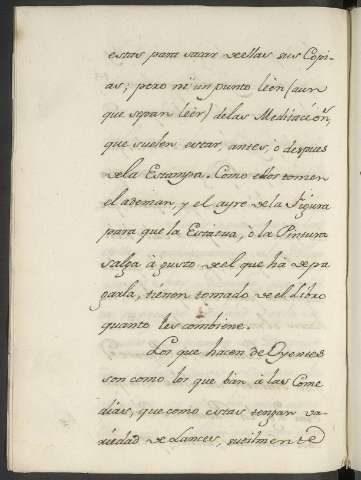 estas para sacar de ellas sus Copi-
as; pero ni un punto lèèn (aun
que sepan lèèr) de las Meditaciõn,
que suelen estar, antes, ò despues
de la Estampa. Como ellos tomen
el ademan, y el ayre de la Figura
para que la Estàtua, ò la Pintura
salga à gusto de el que hà de pa
garla, tienen tomado de el Libro
quanto les combiene.
Los que hacen de Oyentes
son como los que bàn à las Come
dias, que como estas tengan va-
riedad de Lances, sutilmente